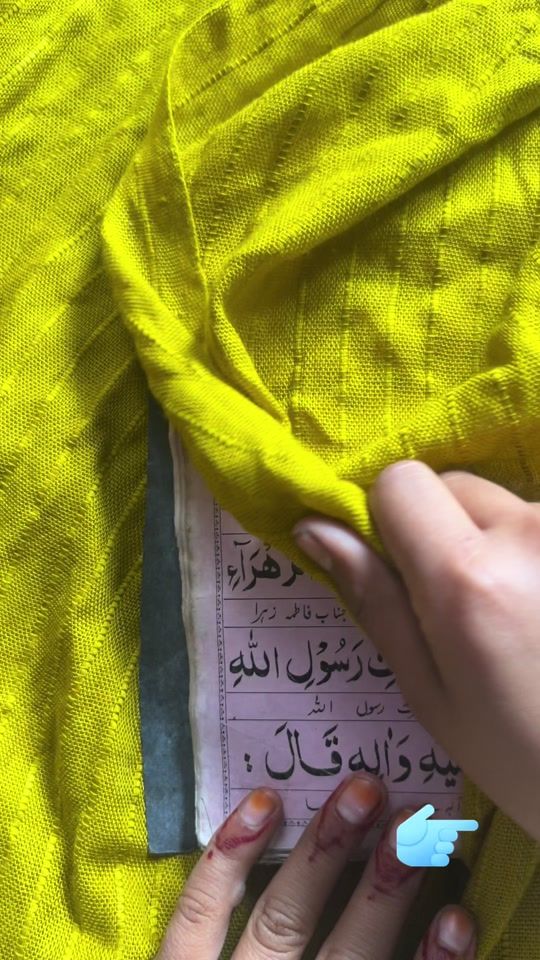 جناب فاطمہ زہرا
رَسُوْلِ اللّٰهِ
رسول اللہ
وَاٰلِهٖ قَالَ :